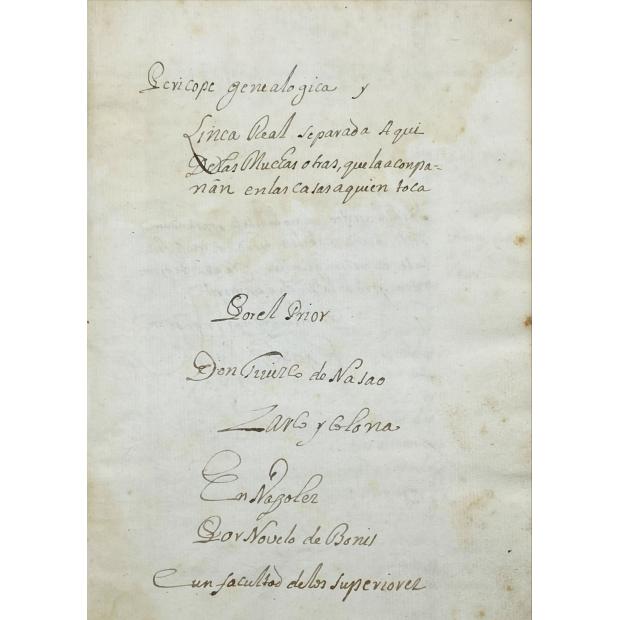 Pericope genealogica y
Linea Real separada Aqui
De las Muchas otras, que la aconpa-
nãn en las casas a quien toca
Por el Prior
Don Tivisco de Nasao
Zarco y Colona
En Napoles
Por Novelo de Bonis
Cun facultad de los superiores